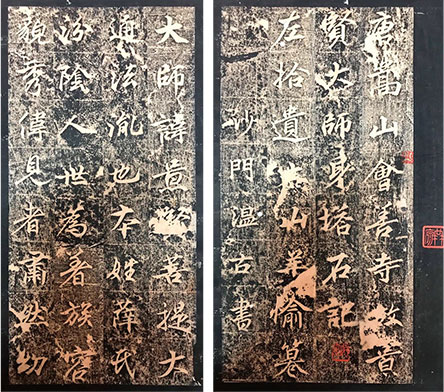 唐嵩山會善寺故景
賢大師身塔石記
左拾遺山羊愉纂
沙門溫古書
大師諱景賢菩提大
通法胤也本姓薛氏
汾陰人世為著族容
貌秀偉見者肅然幼